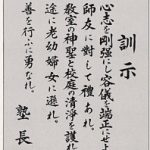 訓示
心志を剛強にし容儀を端正にせよ
師友に対して禮あれ
教室の神聖と校庭の清浄を護れ
途に老幼婦女に遜れ
善を行ふに勇なれ
塾長